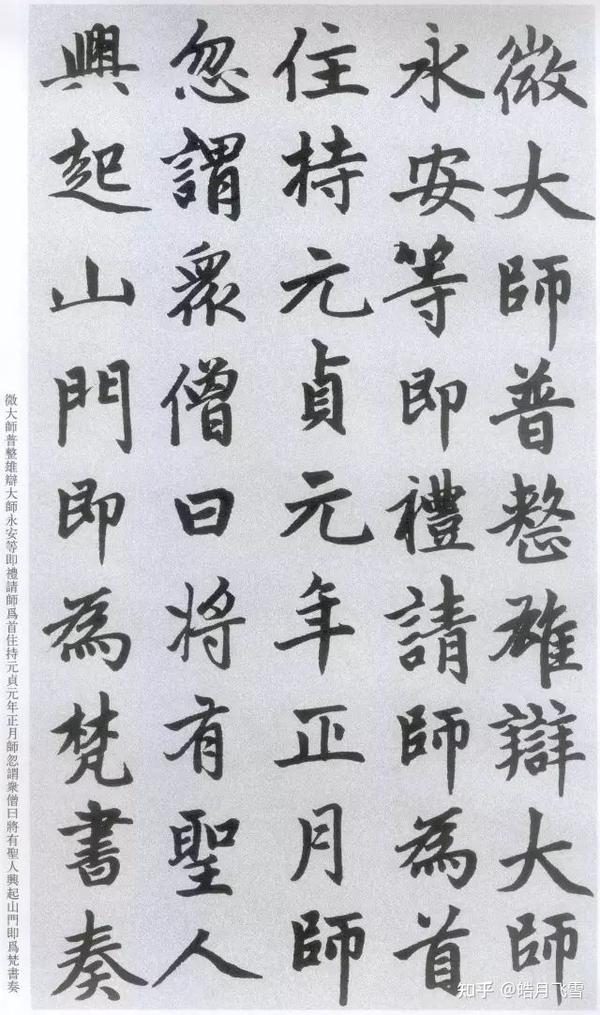 微大師普整雄辯大師
永安等即禮請師為首
住持元貞元年正月師
忽謂眾僧曰將有聖人
興起山門即為梵書奏
微大師普整雄辯大師永安等即禮請師爲首住持元貞元年正月師忽謂衆僧曰將有聖人興起山門即爲梵書奏
知乎 @皓月飞雪